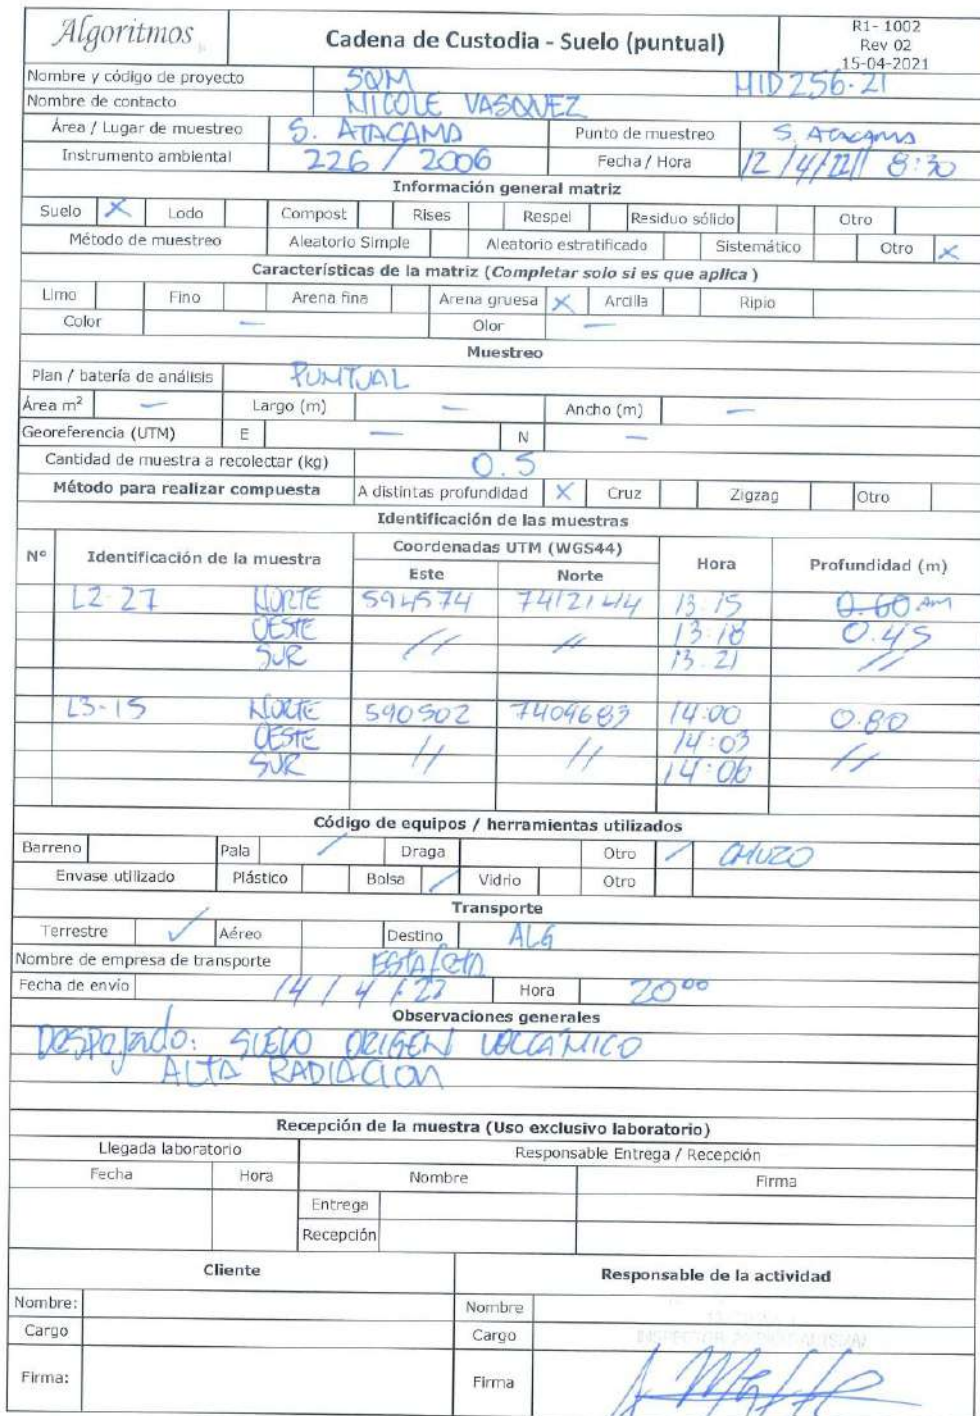 Algoritmos
Cadena de Custodia - Suelo (puntual)
R1- 1002
Rev 02
15-04-2021
Nombre y código de proyecto SQM HID256-21
Nombre de contacto NICOLE VASQUEZ
Área / Lugar de muestreo S. ATACAMA Punto de muestreo S. ATACAMA
Instrumento ambiental 226 / 2006 Fecha / Hora 12 /4/22// 8:30
Información general matriz
Suelo X Lodo Compost Rises Respel Residuo sólido Otro
Método de muestreo Aleatorio Simple Aleatorio estratificado Sistemático Otro X
Características de la matriz (Completar solo si es que aplica )
Limo Fino Arena fina Arena gruesa X Arcilla Ripio
Color — Olor —
Muestreo
Plan / batería de análisis PUNTUAL
Área m² — Largo (m) — Ancho (m) —
Georeferencia (UTM) E — N —
Cantidad de muestra a recolectar (kg) 0.5
Método para realizar compuesta A distintas profundidad X Cruz Zigzag Otro
Identificación de las muestras
Nº Identificación de la muestra Coordenadas UTM (WGS44) Hora Profundidad (m)
Este Norte
L2-27 NORTE 594574 7412144 13:15 0.60 AM
OESTE // // 13:18 0.45
SUR 13:21 //
L3-15 NORTE 590502 7409683 14:00 0.80
OESTE // // 14:03 //
SUR 14:06
Código de equipos / herramientas utilizados
Barreno Pala / Draga Otro / CHUZO
Envase utilizado Plástico Bolsa / Vidrio Otro
Transporte
Terrestre ✓ Aéreo Destino ALG
Nombre de empresa de transporte ESTAFETA
Fecha de envío 14 / 4 / 22 Hora 20°°
Observaciones generales
Despejado: SUELO ORIGEN VOLCÁNICO
ALTA RADIACION
Recepción de la muestra (Uso exclusivo laboratorio)
Llegada laboratorio Responsable Entrega / Recepción
Fecha Hora Nombre Firma
Entrega
Recepción
Cliente Responsable de la actividad
Nombre: Nombre
Cargo Cargo
Firma: Firma